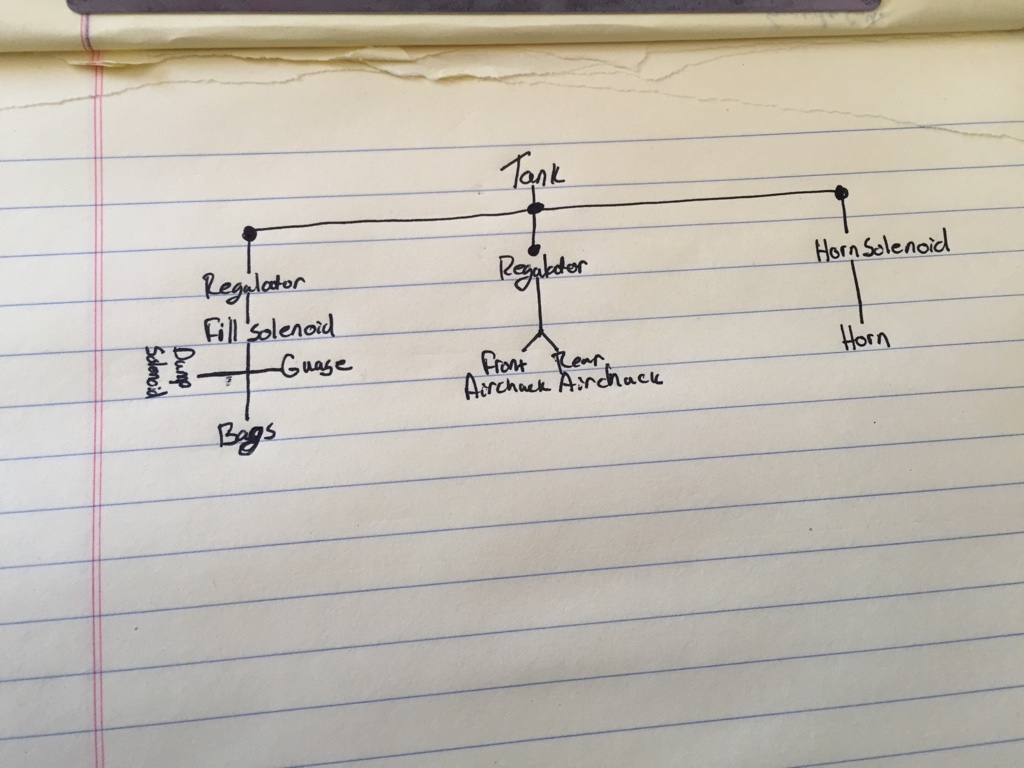 Tank
Regulator
Fill Solenoid
Dump
Solenoid
Guage
Bags
Regulator
Front
Airchuck
Rear
Airchuck
Horn Solenoid
Horn